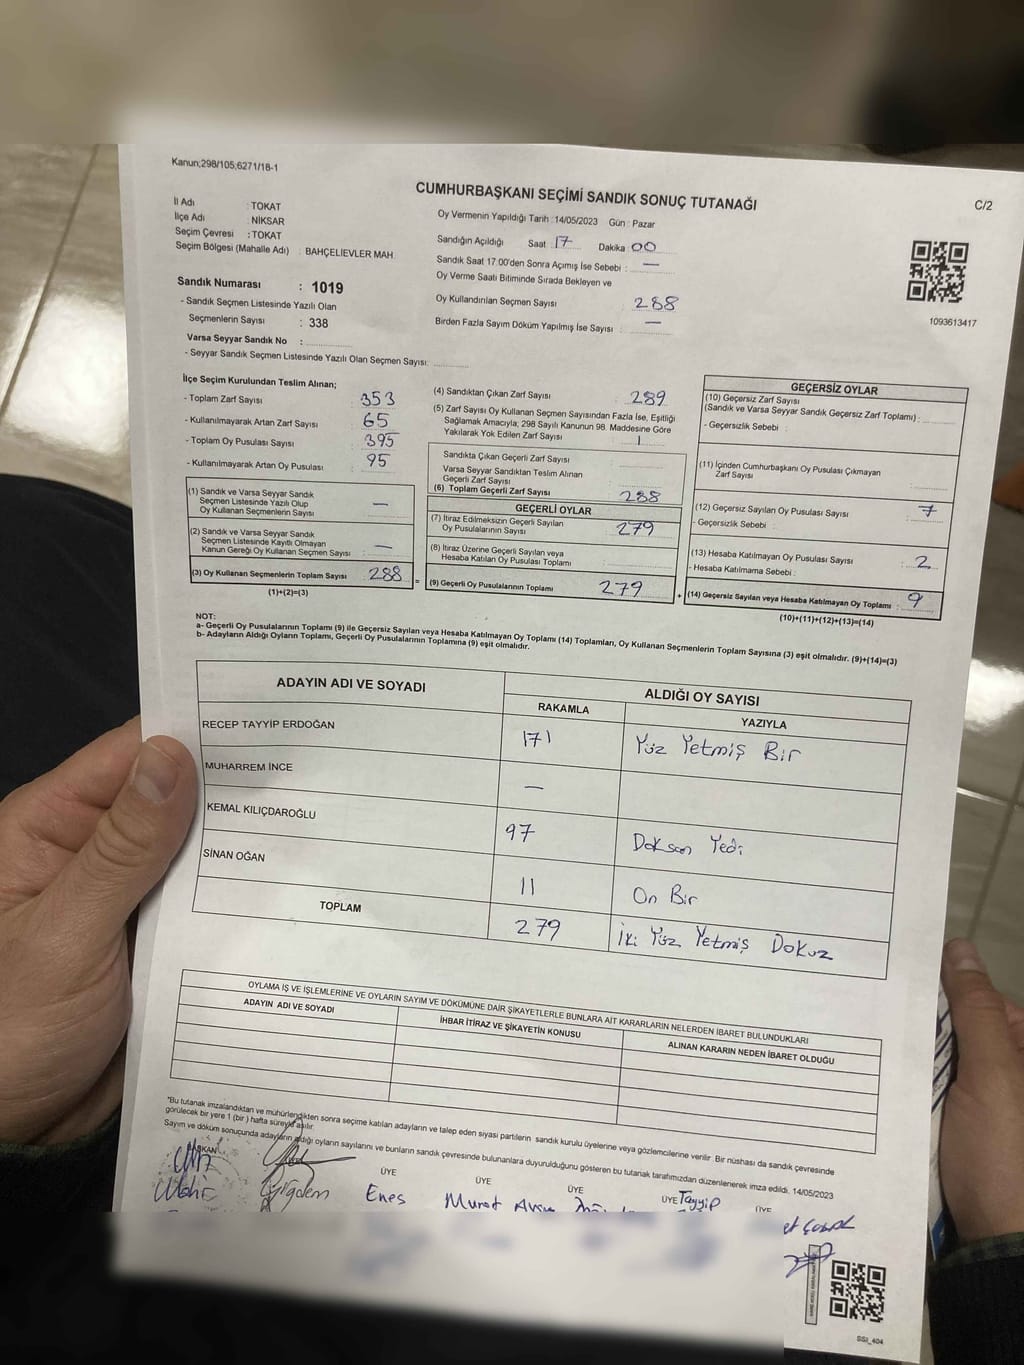 Kanun;298/105;6271/18-1
CUMHURBAŞKANI SEÇİMİ SANDIK SONUÇ TUTANAĞI
C/2
İl Adı : TOKAT
İlçe Adı : NİKSAR
Seçim Çevresi : TOKAT
Seçim Bölgesi (Mahalle Adı) : BAHÇELİEVLER MAH.
Oy Vermenin Yapıldığı Tarih : 14/05/2023 Gün : Pazar
Sandığın Açıldığı Saat : 17 Dakika : 00
Sandık Saat 17.00'den Sonra Açımış İse Sebebi : —
Oy Verme Saati Bitiminde Sırada Bekleyen ve
Oy Kullandırılan Seçmen Sayısı : 288
Birden Fazla Sayım Döküm Yapılmış İse Sayısı : —
1093613417
Sandık Numarası : 1019
- Sandık Seçmen Listesinde Yazılı Olan
Seçmenlerin Sayısı : 338
Varsa Seyyar Sandık No :
- Seyyar Sandık Seçmen Listesinde Yazılı Olan Seçmen Sayısı:
İlçe Seçim Kurulundan Teslim Alınan;
- Toplam Zarf Sayısı : 353
- Kullanılmayarak Artan Zarf Sayısı : 65
- Toplam Oy Pusulası Sayısı : 395
- Kullanılmayarak Artan Oy Pusulası : 95
(1) Sandık ve Varsa Seyyar Sandık
Seçmen Listesinde Yazılı Olup
Oy Kullanan Seçmenlerin Sayısı : —
(2) Sandık ve Varsa Seyyar Sandık
Seçmen Listesinde Kayıtlı Olmayan
Kanun Gereği Oy Kullanan Seçmen Sayısı : —
(3) Oy Kullanan Seçmenlerin Toplam Sayısı : 288
(1)+(2)=(3)
(4) Sandıktan Çıkan Zarf Sayısı : 289
(5) Zarf Sayısı Oy Kullanan Seçmen Sayısından Fazla İse, Eşitliği
Sağlamak Amacıyla; 298 Sayılı Kanunun 98. Maddesine Göre
Yakılarak Yok Edilen Zarf Sayısı : 1
Sandıkta Çıkan Geçerli Zarf Sayısı :
Varsa Seyyar Sandıktan Teslim Alınan
Geçerli Zarf Sayısı :
(6) Toplam Geçerli Zarf Sayısı : 288
GEÇERLİ OYLAR
(7) İtiraz Edilmeksizin Geçerli Sayılan
Oy Pusulalarının Sayısı : 279
(8) İtiraz Üzerine Geçerli Sayılan veya
Hesaba Katılan Oy Pusulası Toplamı :
(9) Geçerli Oy Pusulalarının Toplamı : 279
GEÇERSİZ OYLAR
(10) Geçersiz Zarf Sayısı
(Sandık ve Varsa Seyyar Sandık Geçersiz Zarf Toplamı) :
- Geçersizlik Sebebi :
(11) İçinden Cumhurbaşkanı Oy Pusulası Çıkmayan
Zarf Sayısı :
(12) Geçersiz Sayılan Oy Pusulası Sayısı : 7
- Geçersizlik Sebebi :
(13) Hesaba Katılmayan Oy Pusulası Sayısı : 2
- Hesaba Katılmama Sebebi :
(14) Geçersiz Sayılan veya Hesaba Katılmayan Oy Toplamı : 9
(10)+(11)+(12)+(13)=(14)
NOT:
a- Geçerli Oy Pusulalarının Toplamı (9) ile Geçersiz Sayılan veya Hesaba Katılmayan Oy Toplamı (14) Toplamları, Oy Kullanan Seçmenlerin Toplam Sayısına (3) eşit olmalıdır. (9)+(14)=(3)
b- Adayların Aldığı Oyların Toplamı, Geçerli Oy Pusulalarının Toplamına (9) eşit olmalıdır.
ADAYIN ADI VE SOYADI
ALDIĞI OY SAYISI
RAKAMLA YAZIYLA
RECEP TAYYİP ERDOĞAN 171 Yüz Yetmiş Bir
MUHARREM İNCE —
KEMAL KILIÇDAROĞLU 97 Doksan Yedi
SİNAN OĞAN 11 On Bir
TOPLAM 279 İki Yüz Yetmiş Dokuz
OYLAMA İŞ VE İŞLEMLERİNE VE OYLARIN SAYIM VE DÖKÜMÜNE DAİR ŞİKAYETLERLE BUNLARA AİT KARARLARIN NELERDEN İBARET BULUNDUKLARI
ADAYIN ADI VE SOYADI İHBAR İTİRAZ VE ŞİKAYETİN KONUSU ALINAN KARARIN NEDEN İBARET OLDUĞU
*Bu tutanak imzalandıktan ve mühürlendikten sonra seçime katılan adayların ve talep eden siyasi partilerin sandık kurulu üyelerine veya gözlemcilerine verilir. Bir nüshası da sandık çevresinde
görülecek bir yere 1 (bir) hafta süreyle asılır.
Sayım ve döküm sonucunda adayların aldığı oyların sayılarını ve bunların sandık çevresinde bulunanlara duyurulduğunu gösteren bu tutanak tarafımızdan düzenlenerek imza edildi. 14/05/2023
BAŞKAN
ÜYE ÜYE ÜYE ÜYE ÜYE
Çiğdem Enes Murat Tayyip
SSI_404